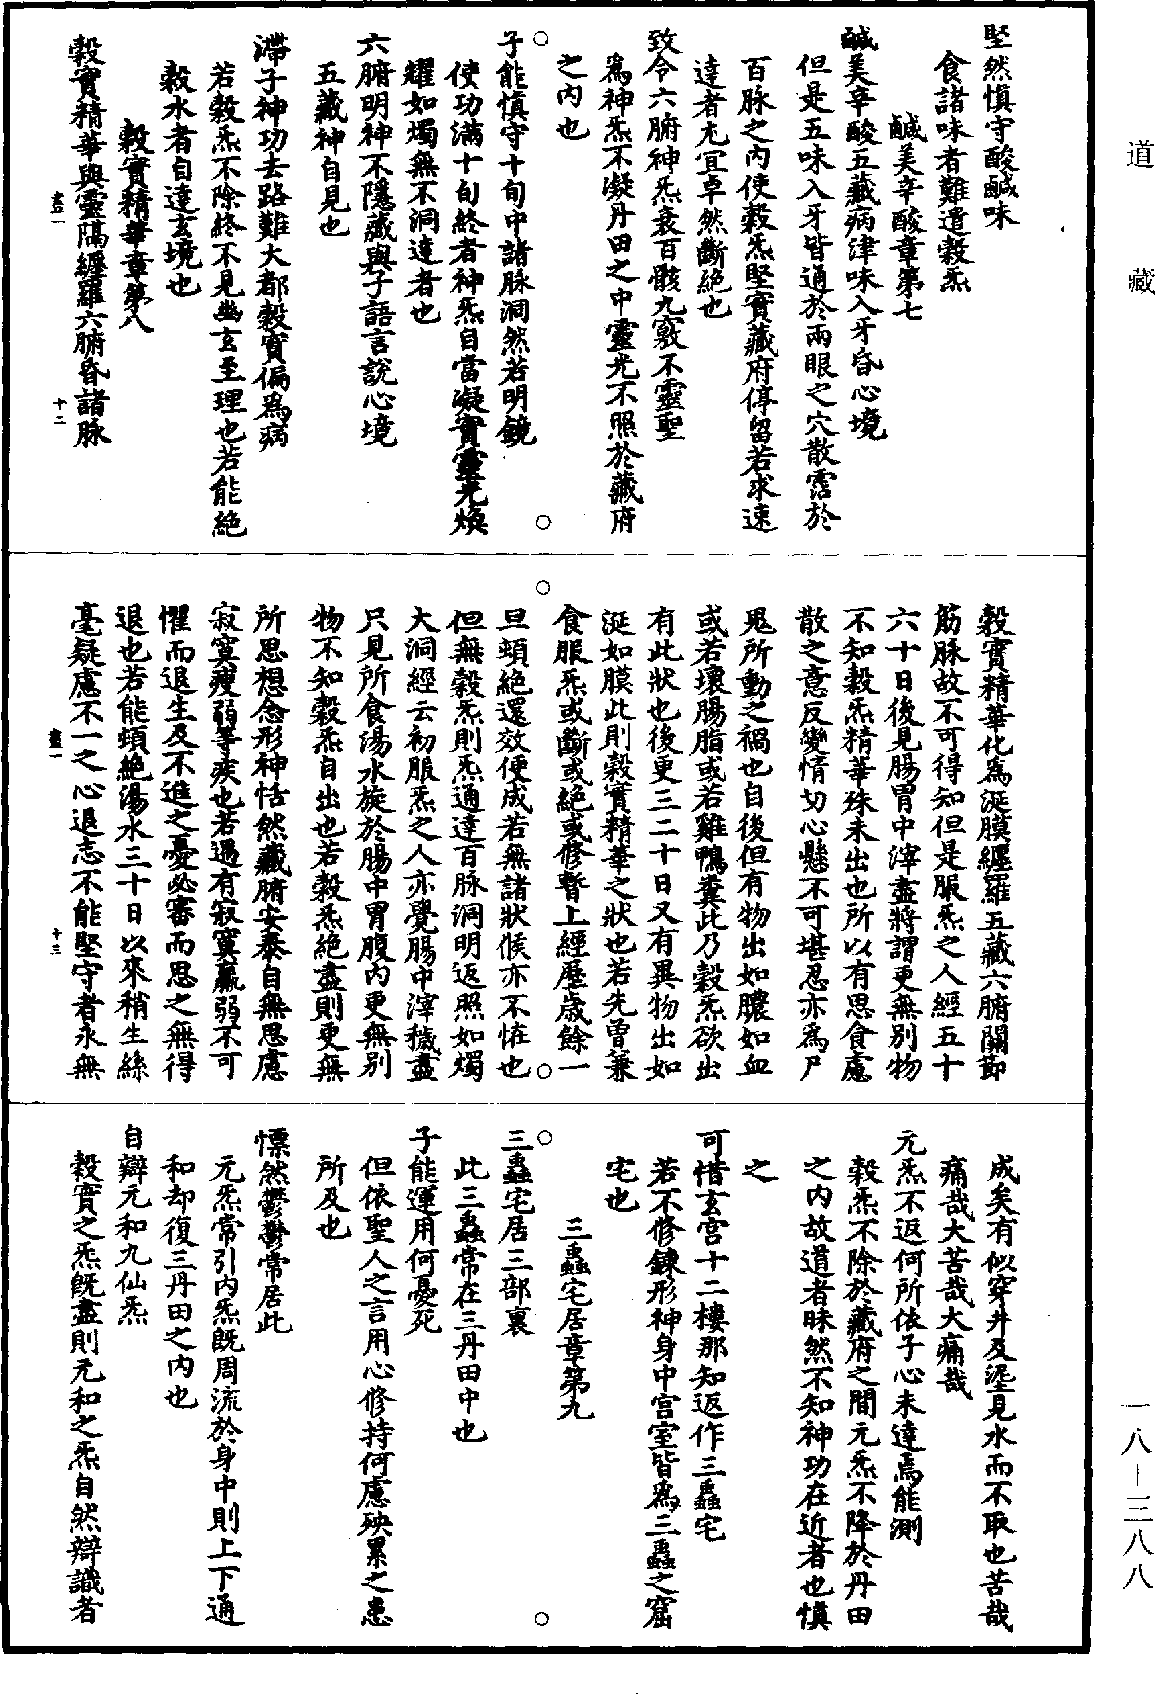 道藏
堅然慎守酸鹹味
食諸味者難遣穀炁
鹹美辛酸章第七
鹹美辛酸五藏病津味入牙昏心境
但是五味入牙皆通於兩眼之穴散霑於
百脉之內使穀炁堅實藏府停留若求速
達者尤宜卓然斷絕也
致令六腑神炁衰百骸九竅不靈聖
爲神炁不凝丹田之中靈光不照於藏府
之內也
子能慎守十旬中諸脉洞然若明鏡
使功滿十旬終者神炁自當凝實靈光煥
耀如燭無不洞達者也
六腑明神不隱藏與子語言說心境
五藏神自見也
滯子神功去路難大都穀實偏爲病
若穀炁不除終不見幽玄至理也若能絕
穀水者自達玄境也
穀實精華章第八
穀實精華與靈隔纏羅六腑昏諸脉
盡一
十二
穀實精華化爲涎膜纏羅五藏六腑關節
筋脉故不可得知但是服炁之人經五十
六十日後見腸胃中滓盡將謂更無別物
不知穀炁精華殊未出也所以有思食慮
散之意反變情切心懸不可堪忍亦爲尸
鬼所動之禍也自後但有物出如膿如血
或若壞腸脂或若雞鴨糞此乃穀炁欲出
有此狀也後更三二十日又有異物出如
涎如膜此則穀實精華之狀也若先曾兼
食服炁或斷或絕或修暫上經歷歲餘一
旦頓絕還效便成若無諸狀候亦不恠也
但無穀炁則炁通達百脉洞明返照如燭
大洞經云初服炁之人亦覺腸中滓穢盡
只見所食湯水旋於腸中胃腹內更無別
物不知穀炁自出也若穀炁絕盡則更無
所思想念形神恬然藏腑安泰自無思慮
寂寞瘦弱等疾也若遇有寂寞羸弱不可
懼而退生及不進之憂必審而思之無得
退也若能頓絕湯水三十日以來稍生絲
毫疑慮不一之心退志不能堅守者永無
盡一
十三
成矣有似穿井及埿見水而不取也苦哉
痛哉大苦哉大痛哉
元炁不返何所依子心未達焉能測
穀炁不除於藏府之間元炁不降於丹田
之內故道者昧然不知神功在近者也慎
之
可惜玄宮十二樓那知返作三蟲宅
若不修鍊形神身中宮室皆爲三蟲之窟
宅也
三蟲宅居章第九
三蟲宅居三部裏
此三蟲常在三丹田中也
子能運用何憂死
但依聖人之言用心修持何慮殃累之患
所及也
慓然鬱鬱常居此
元炁常引內炁既周流於身中則上下通
和却復三丹田之內也
自辯元和九仙炁
穀實之炁既盡則元和之炁自然辯識者
一八—三八八